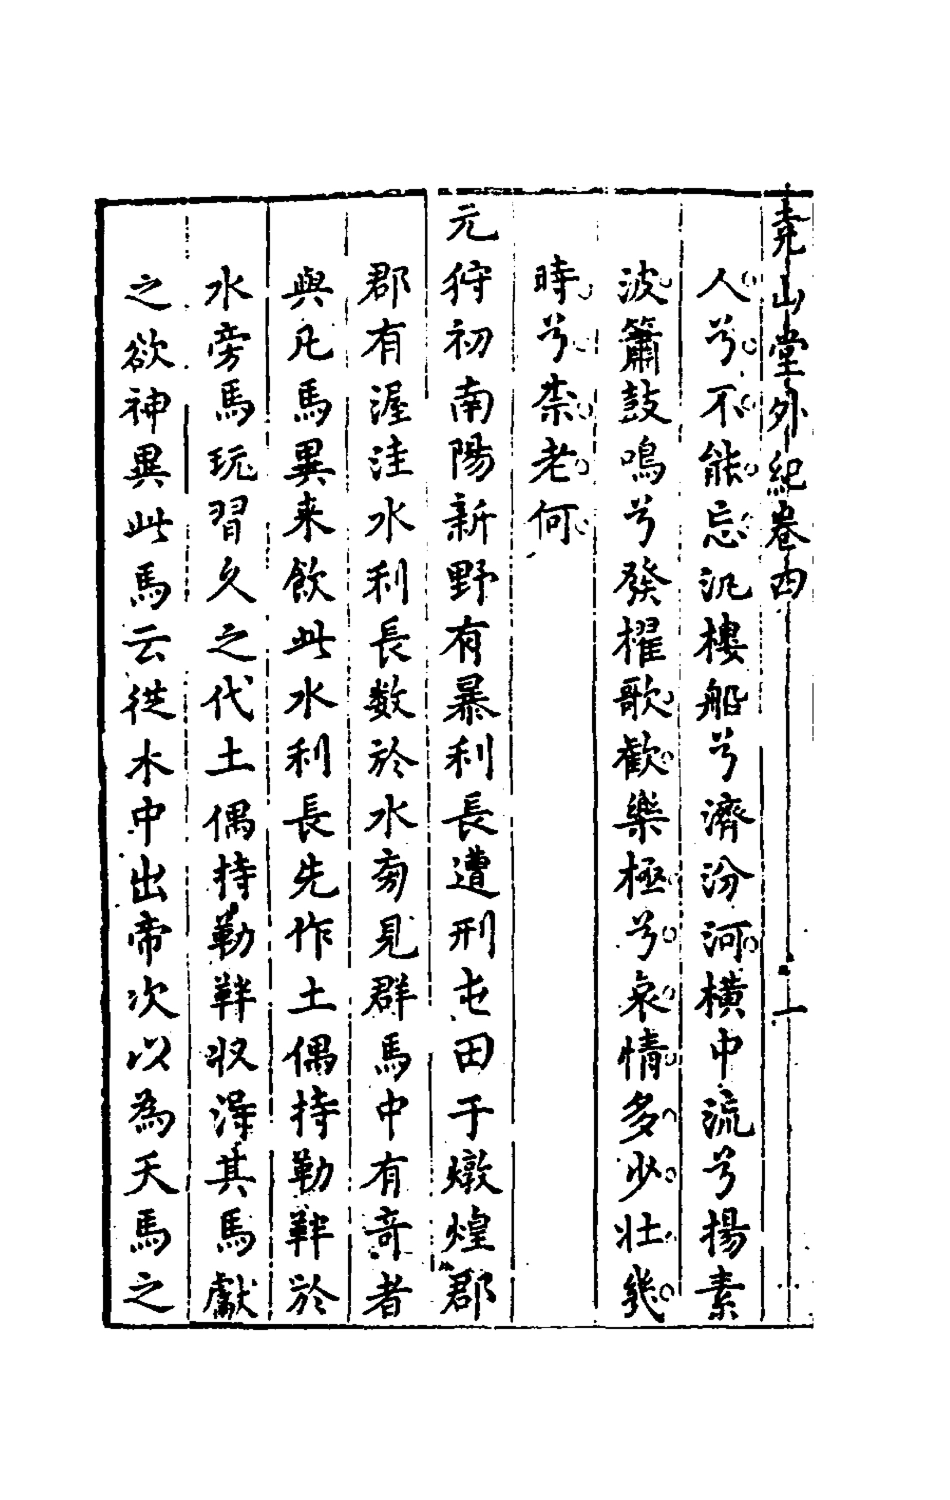 堯山堂外紀卷四 一
人兮不能忘汎樓船兮濟汾河橫中流兮揚素
波簫鼓鳴兮發櫂歌歡樂極兮哀情多少壯幾
時兮柰老何
元狩初南陽新野有暴利長遭刑屯田于燉煌郡
郡有渥洼水利長数於水旁見群馬中有竒者
與凡馬異来飲此水利長先作土偶持勒靽於
水旁馬玩習久之代土偶持勒靽収淂其馬獻
之欲神異此馬云從水中出帝次以為天馬之